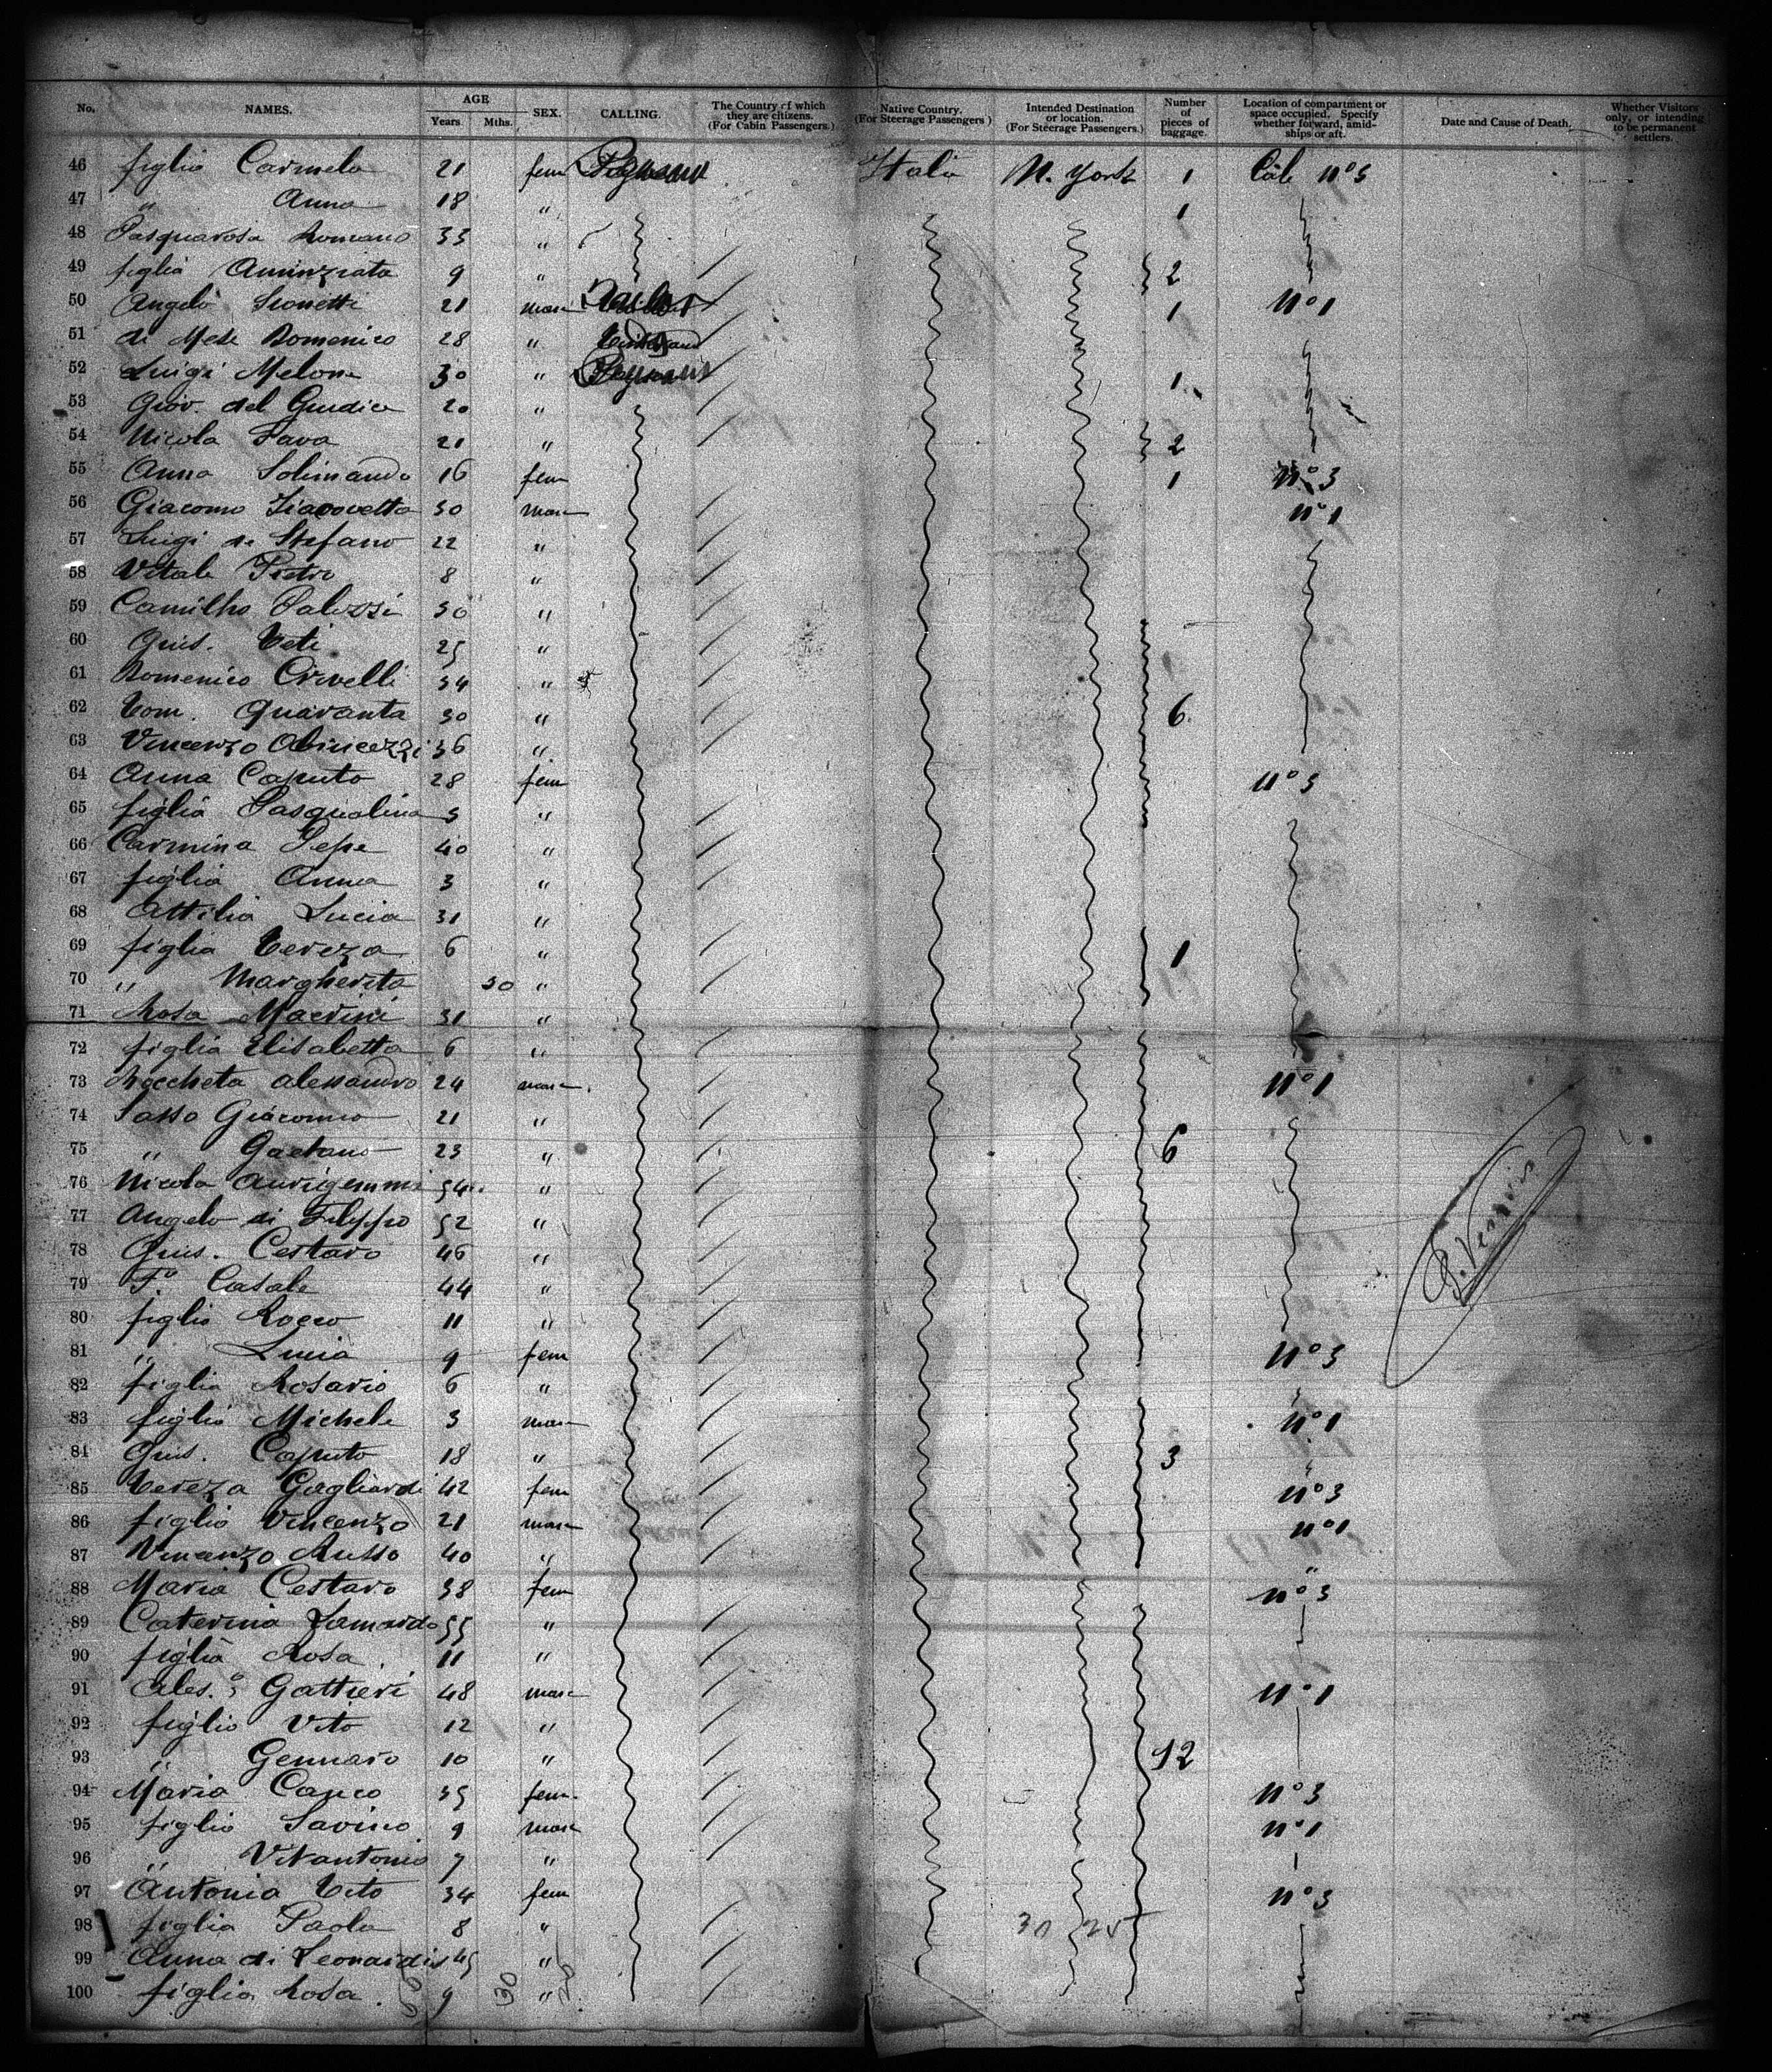 No. NAMES. AGE Years. Mths. SEX. CALLING. The Country of which they are citizens. (For Cabin Passengers.) Native Country. (For Steerage Passengers.) Intended Destination or location. (For Steerage Passengers.) Number of pieces of baggage. Location of compartment or space occupied. Specify whether forward, amidships or aft. Date and Cause of Death. Whether Visitors only, or intending to be permanent settlers.
46 figlia Carmela 21 fem Italia N. York 1 n°3
47 " Anna 18 " 1
48 Pasquarosa Romano 33 "
49 figlia Annunziata 9 " 2
50 Angelo 21 masc 1 n°1
51 di Domenico 28 "
52 Luigi Melone 30 " 1
53 Giov. del Giudice 20 "
54 Nicola Fava 21 " 2
55 Anna Solimando 16 fem 1 n°3
56 Giacomo 30 masc n°1
57 Luigi de Stefano 22 "
58 Vitale Pietro 8 "
59 Camilho 30 "
60 Gius. Teti 25 "
61 Domenico Crivelli 34 "
62 Tom. Quaranta 30 " 6
63 Vincenzo 36 "
64 Anna Caputo 28 fem n°3
65 figlia Pasqualina 3 "
66 Carmina Pepe 40 "
67 figlia Anna 3 "
68 Attilia Lucia 31 "
69 figlia Tereza 6 " 1
70 " Margherita 30 "
71 Rosa 31 "
72 figlia Elisabetta 6 "
73 Alessandro 24 masc n°1
74 Sasso Giacomo 21 "
75 " Gaetano 23 " 6
76 Nicola Aurigemma 54 "
77 Angelo di Filippo 52 "
78 Gius. Cestaro 46 "
79 F° Casale 44 "
80 figlio Rocco 11 "
81 " Lucia 9 fem n°3
82 figlia Rosario 6 "
83 figlio Michele 3 masc n°1
84 Gius. Caputo 18 " 3
85 Tereza Gagliardi 42 fem n°3
86 figlio Vincenzo 21 masc n°1
87 Vincenzo Russo 40 " "
88 Maria Cestaro 38 fem n°3
89 Caterina 55 "
90 figlia Rosa 11 "
91 Ales. Gattieri 48 masc n°1
92 figlio Vito 12 "
93 " Gennaro 10 " 12
94 Maria 35 fem n°3
95 figlio Savino 9 masc n°1
96 " Vitantonio 7 "
97 Antonia Tito 34 fem n°3
98 figlia Paola 8 " 30 25
99 Anna di Leonardis 45 "
100 figlia Rosa 9 "